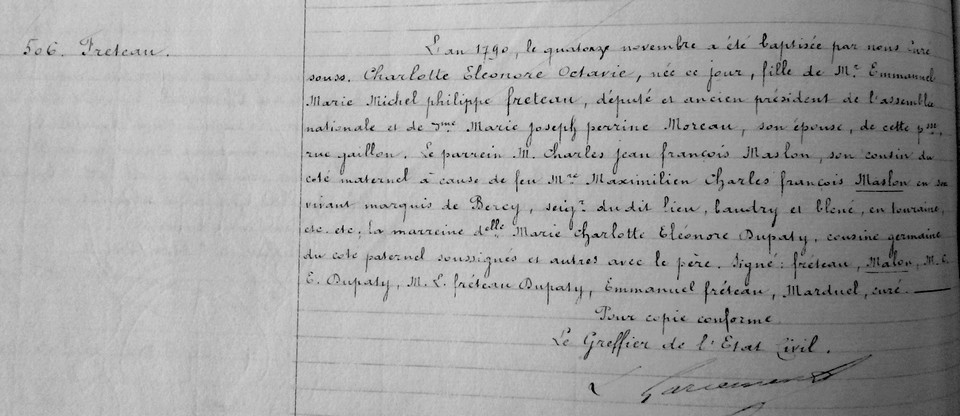 506. Freteau.
L'an 1790, le quatorze novembre a été baptisée par nous curé
souss. Charlotte Eléonore Octavie, née ce jour, fille de Mre Emmanuel
Marie Michel philippe freteau, député et ancien président de l'assemblée
nationale et de Dme Marie Joseph perrine Moreau, son épouse, de cette psse,
rue gaillon. Le parrein M. Charles jean françois Maslon, son cousin du
coté maternel à cause de feu Mre Maximilien Charles françois Maslon en son
vivant marquis de Bercy, seigr. du dit lieu, baudry et bléué, en touraine,
etc. etc; la marreine delle Marie Charlotte Eléonore Dupaty, cousine germaine
du coté paternel soussignés et autres avec le père. Signé: fréteau, Malon, M. C.
E. Dupaty, M. L. fréteau Dupaty, Emmanuel fréteau, Marduel, curé.
Pour copie conforme
Le Greffier de l'Etat Civil.